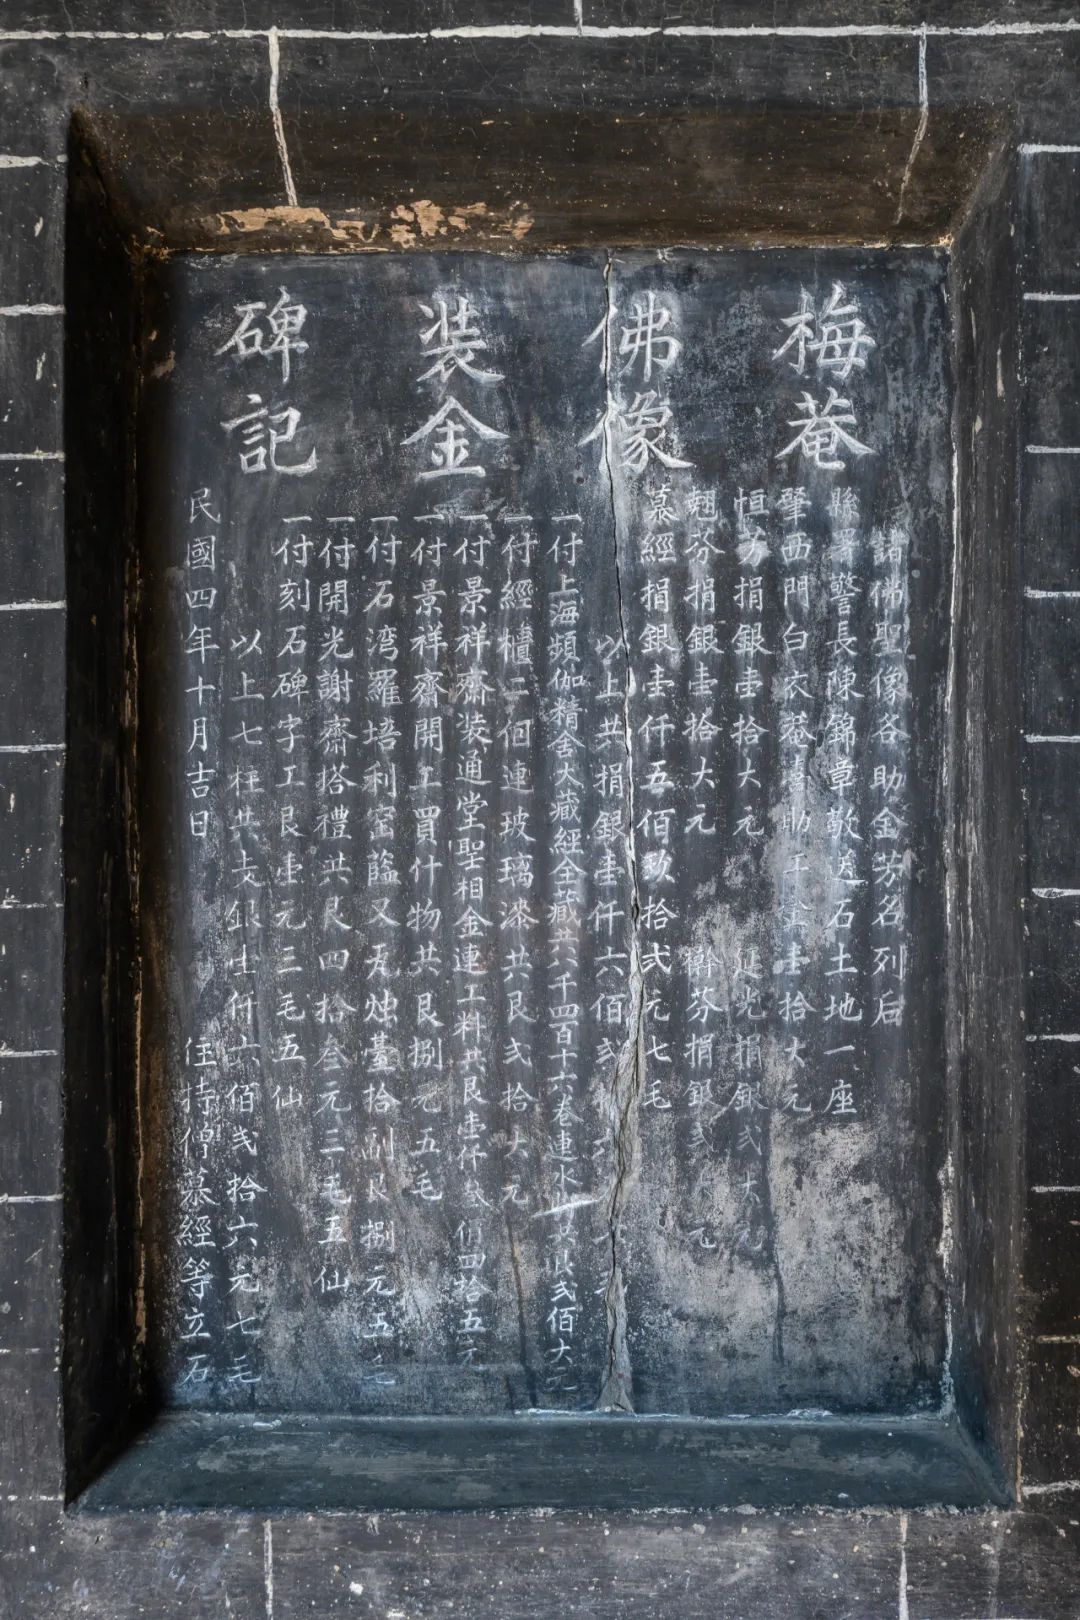 梅菴
佛像
装金
碑記
諸佛聖像各助金芳名列后
縣署警長陳錦章敬送石土地一座
肇西門白衣菴 助工金壹拾大元
恒芳捐銀壹拾大元 延光捐銀弍大元
翹芬捐銀壹拾大元 幹芬捐銀弍大元
慕經捐銀壹仟五佰玖拾弍元七毛
以上共捐銀壹仟六佰弍
一付上海頻伽精舍大藏經全藏共六千四百十六卷連水 共艮弍佰大元
一付經櫃二個連玻璃漆共艮弍拾大元
一付景祥齋装通堂聖相金連工料共艮壹仟叁佰四拾五元
一付景祥齋開工買什物共艮捌元五毛
一付石湾羅培利窑 又瓦烛臺拾副艮捌元五毛
一付開光謝齋搭禮共艮四拾叁元三毛五仙
一付刻石碑字工艮壹元三毛五仙
以上七柱共支銀壹仟六佰弍拾六元七毛
民國四年十月吉日 住持僧慕經等立石